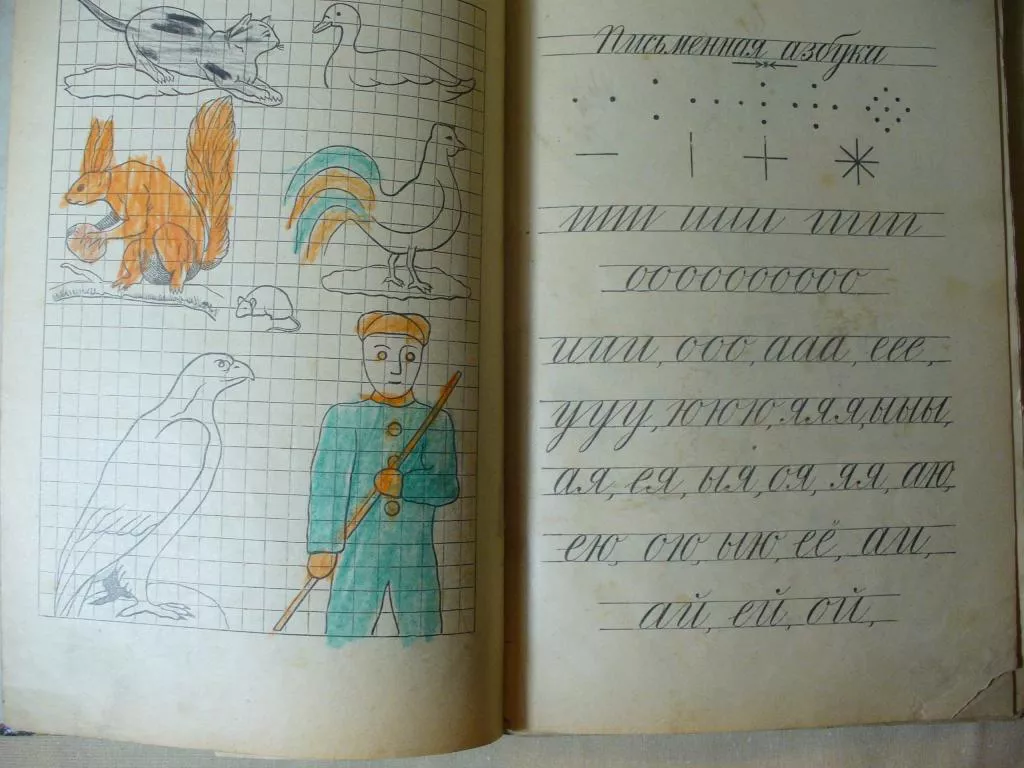 Письменная азбука
шии иии шии
оооооооооо
иии, ооо, ааа, еее,
ууу, ююю, яяя, ыыы,
ая, ея, ыя, оя, яя, аю,
ею, ою, ыю, её, аи,
ай, ей, ой,